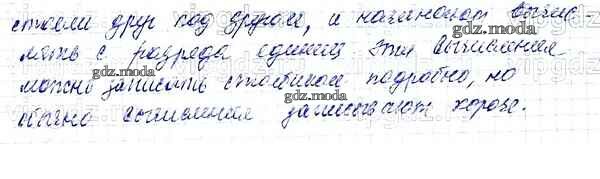 стояли друг под другом, и начинают вычис
мать с разряда единиц эти вычисления
можно записать столбиком подробно, но
обычно вычисления записывают короче.
gdz.moda
gdz.moda
gdz.moda
gdz.moda
gdz.moda
gdz.moda